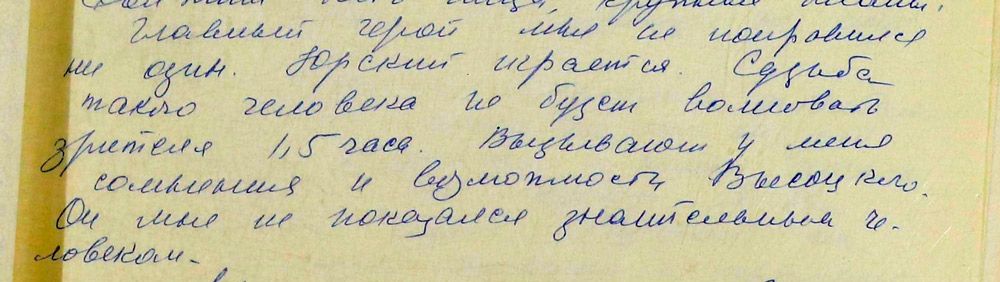 крупные планы.
Главный герой мне не понравился
ни один. Юрский играется. Судьба
такого человека не будет волновать
зрителя 1,5 часа. Вызывают у меня
сомнения и возможности Высоцкого.
Он мне не показался значительным че-
ловеком.